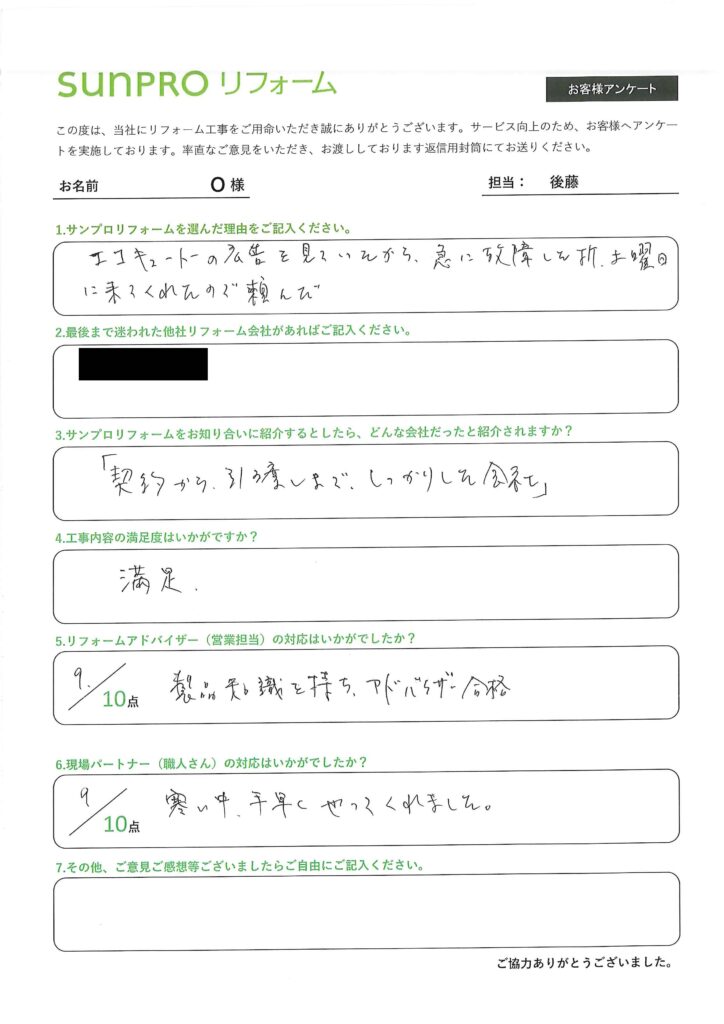 sunPRO リフォーム
お客様アンケート
この度は、当社にリフォーム工事をご用命いただき誠にありがとうございます。サービス向上のため、お客様へアンケー
トを実施しております。率直なご意見をいただき、お渡ししております返信用封筒にてお送りください。
お名前 O 様 担当： 後藤
1.サンプロリフォームを選んだ理由をご記入ください。
エコキュートーの広告を見ていたから、急に故障した折、土曜日
に来てくれたので頼んだ
2.最後まで迷われた他社リフォーム会社があればご記入ください。
3.サンプロリフォームをお知り合いに紹介するとしたら、どんな会社だったと紹介されますか？
「契約から、引き渡しまで、しっかりした会社」
4.工事内容の満足度はいかがですか？
満足.
5.リフォームアドバイザー（営業担当）の対応はいかがでしたか？
9./10点 製品知識を持ち、アドバイザー合格
6.現場パートナー（職人さん）の対応はいかがでしたか？
9/10点 寒い中、手早くやってくれました。
7.その他、ご意見ご感想等ございましたらご自由にご記入ください。
ご協力ありがとうございました。